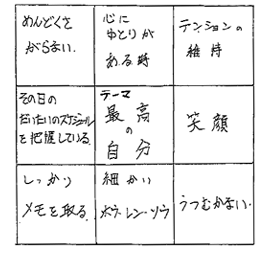 めんどくさ
がらない.
心に
ゆとりが
ある時
テンションの
維持
その日の
だいたいのスケジュール
を把握している.
テーマ
最高
の
自分
笑顔
しっかり
メモを取る.
細かい
ホウ.レン.ソウ
うつむかない.